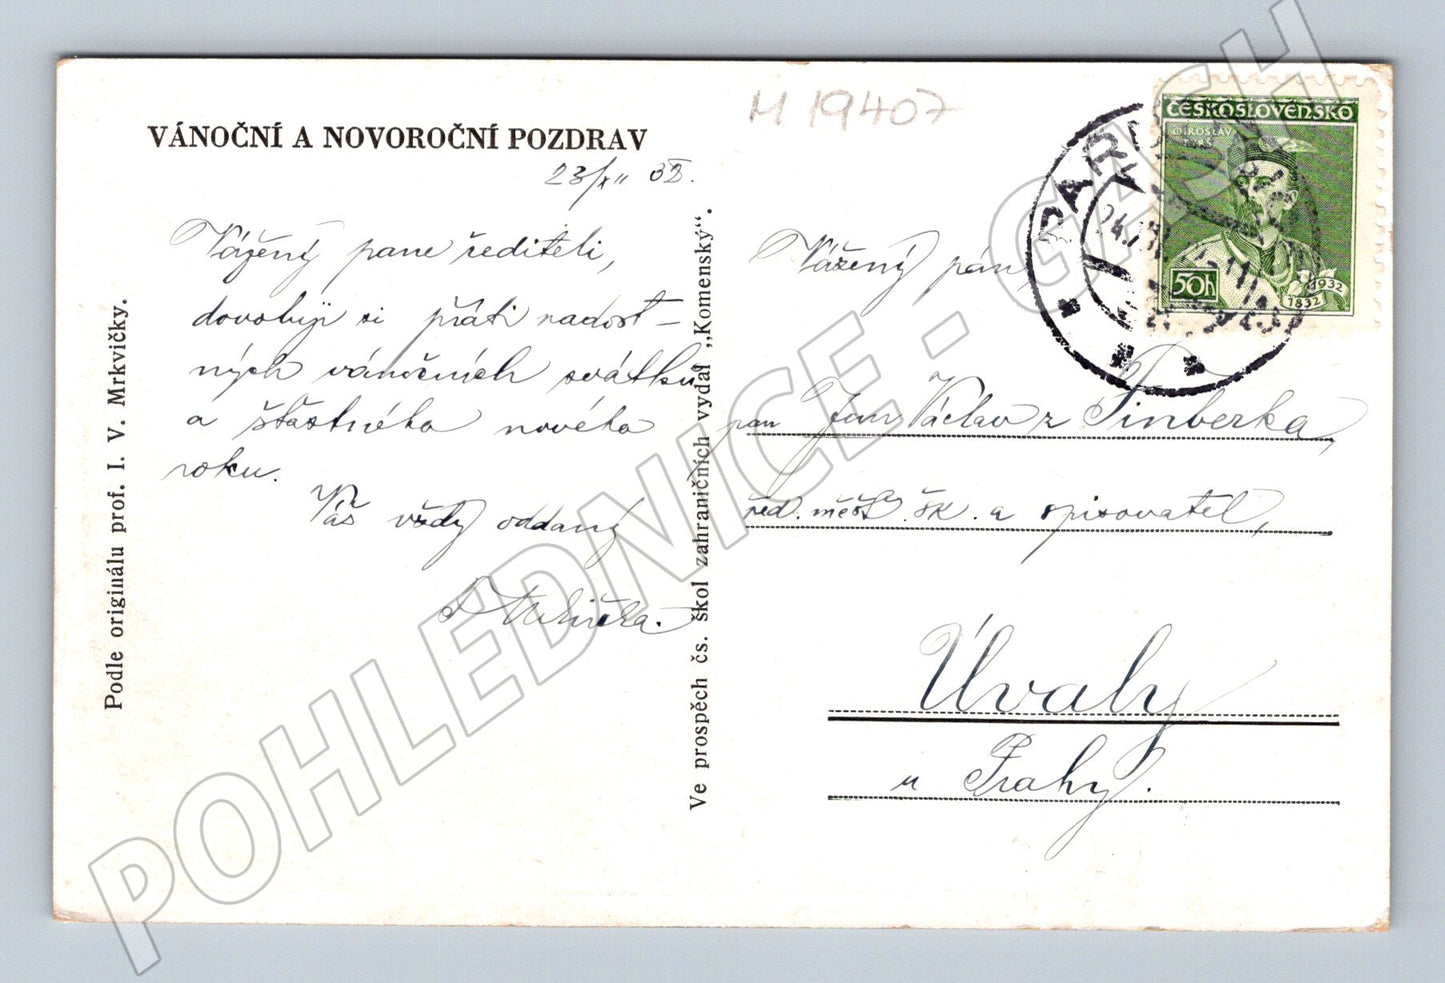 M 19407
VÁNOČNÍ A NOVOROČNÍ POZDRAV
23/XII 32.
Vážený pane řediteli,
dovoluji si přáti radost-
ných vánočních svátků
a šťastného nového
roku.
Váš vždy oddaný
Podle originálu prof. I. V. Mrkvičky.
Ve prospěch čs. škol zahraničních vydal „Komenský“.
ČESKOSLOVENSKO
MIROSLAV
TYRŠ
50h
1832
1932
PAR
Vážený pán
pan Jan Václav z Finberka,
řed. měšť. šk. a spisovatel,
Úvaly
u Prahy.
POHLEDNICE - GASH